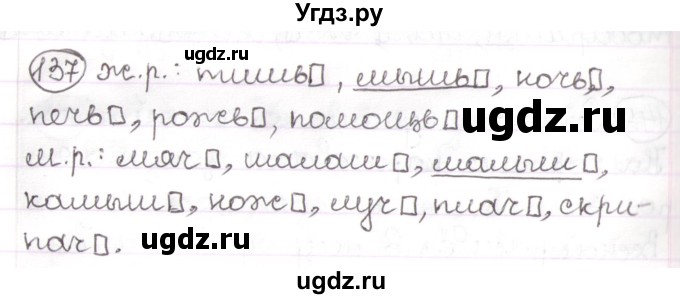 Угдз.ру
137 ж.р.: тишь▯, мышь▯, ночь▯,
ugdz.ru
ugdz.ru
печь▯, рожь▯, помощь▯
ugdz.ru
м.р.: мяч▯, шалаш▯, малыш▯,
камыш▯, нож▯, луч▯, плач▯, скри-
пач▯.
ugdz.ru
ugdz.ru
ugdz.ru